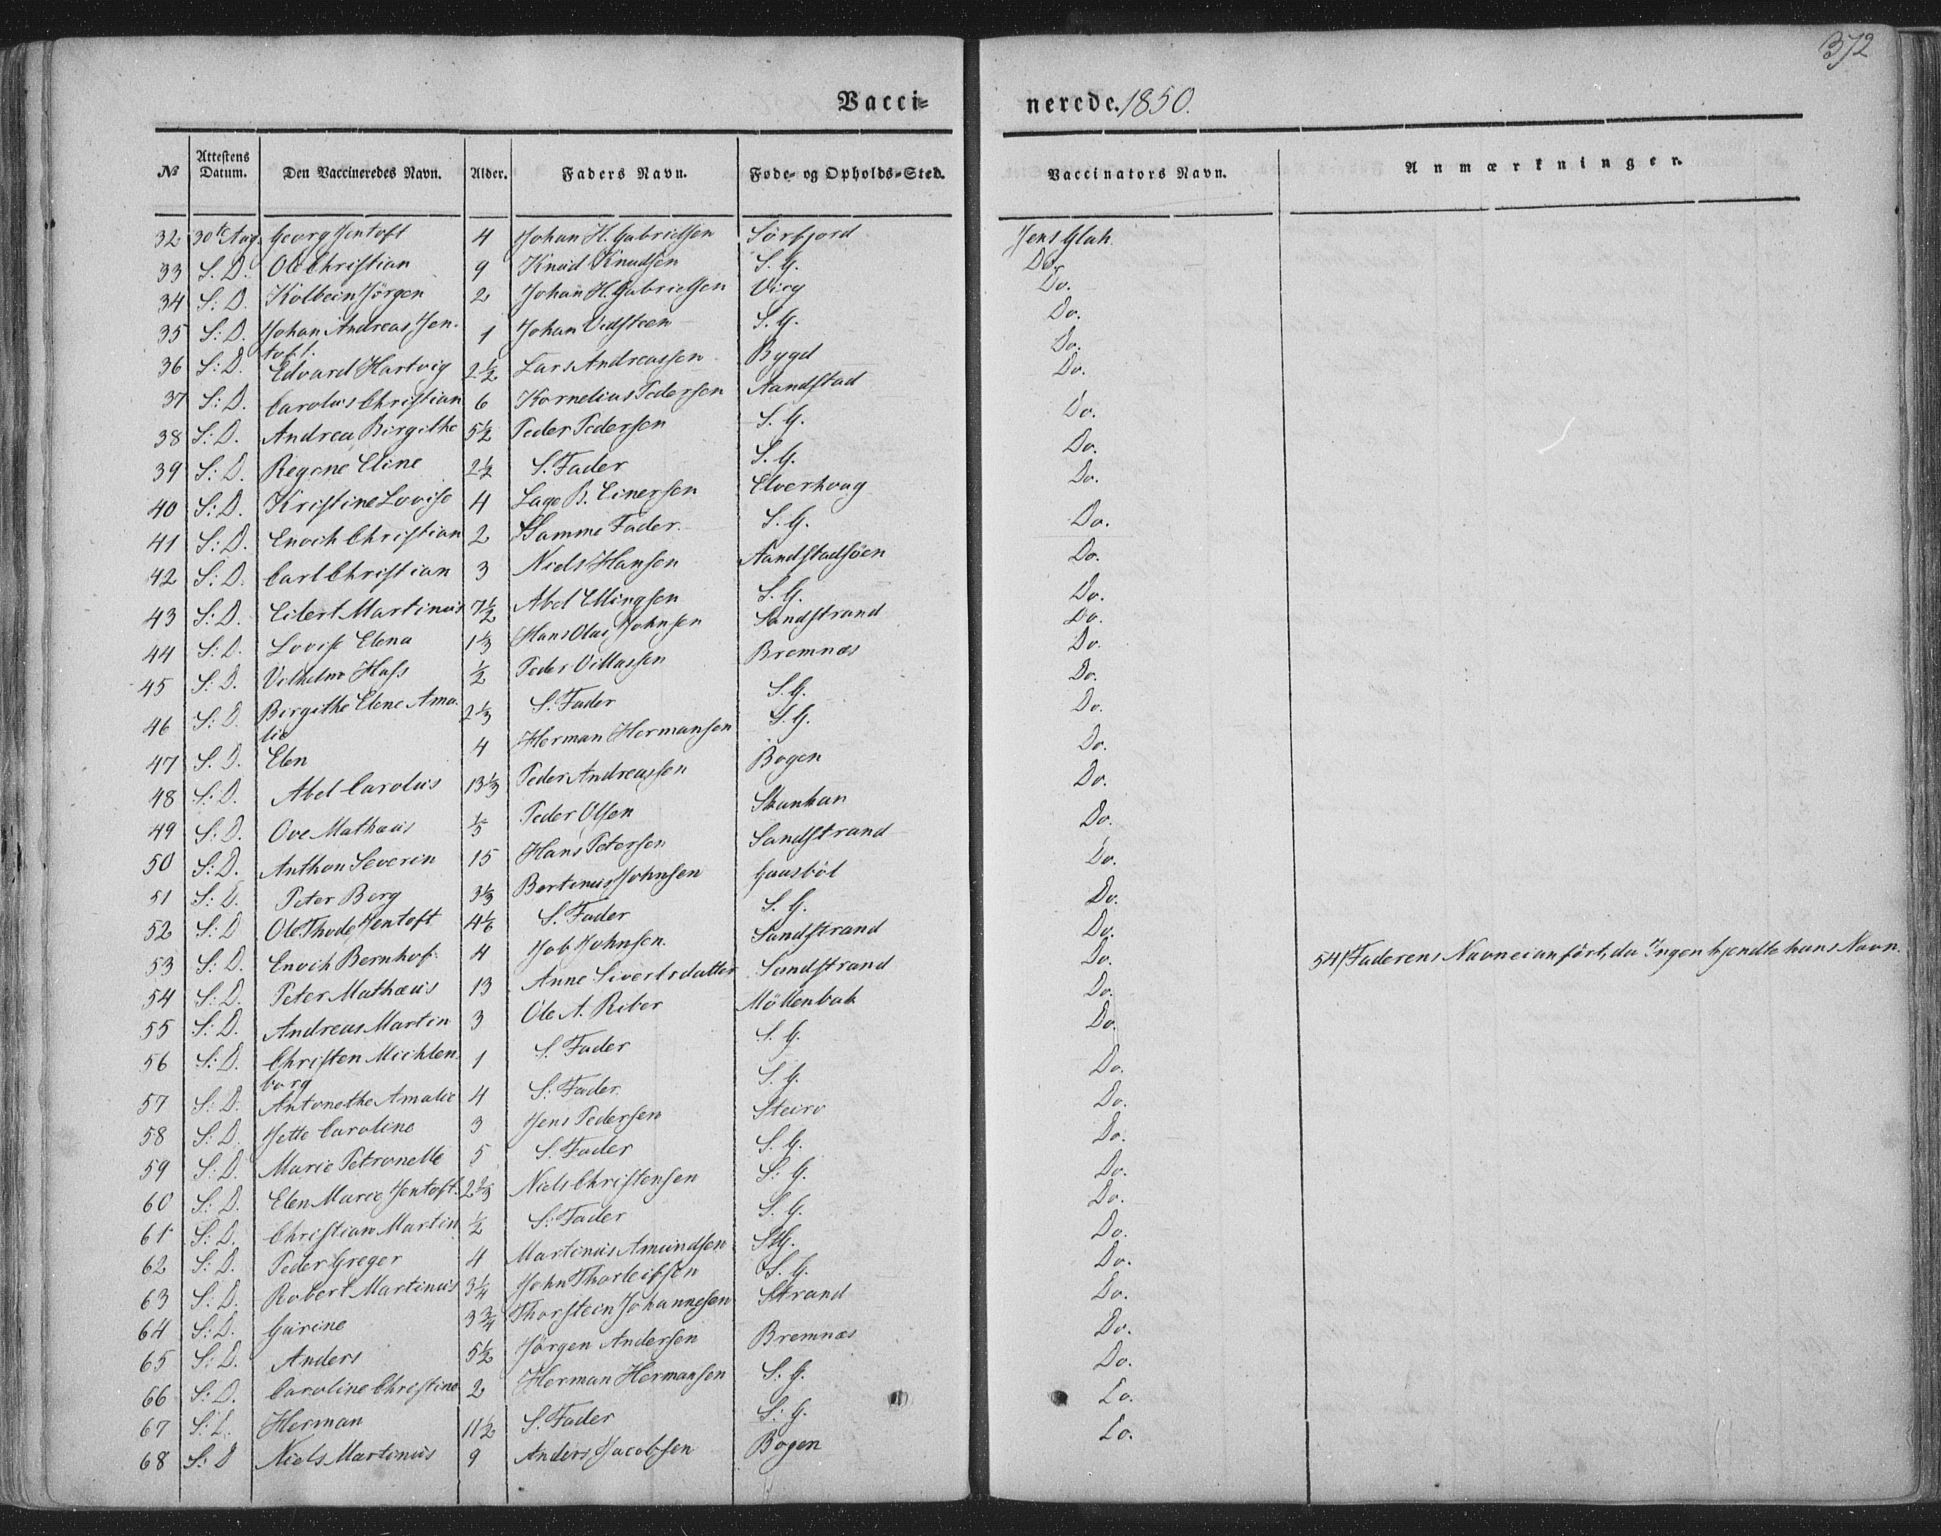 372
Vacci=
nerede. 1850.
№ Attestens Datum. Den Vaccineredes Navn. Alder. Faders Navn. Føde- og Opholds-Sted. Vaccinators Navn. Anmærkninger.
32 30te Aug. Georg Jentoft 4 Johan H. Gabrielsen Sörfjord Jens Glah
33 S. D. Ole Christian 9 Knud Knudsen S. G. Do.
34 S: D. Kolbein Jörgen 2 Johan H. Gabrielsen Virg Do.
35 S: D. Johan Andreas Jen- 1 Johan Vedsteen S. G. Do.
toft.
36 S: D. Edvard Hartvig 2½ Lars Andreassen Bygd Do.
37 S: D. Carolus Christian 6 Kornelius Pedersen Aandstad Do.
38 S: D. Andrea Birgithe 5½ Peder Pedersen S. G. Do.
39 S: D. Regine Eline 2½ S. Fader S. G. Do.
40 S: D. Kristine Lovise 4 Lage B. Einersen Elverhoug Do.
41 S: D. Enoch Christian 2 Samme Fader. S. G. Do.
42 S: D. Carl Christian 3 Niels Hansen Aandstadsöen Do.
43 S: D. Eilert Martinus 7½ Abel Ellingsen S. G. Do.
44 S: D. Lovise Elena 1⅓ Hans Olai Johnsen Sandstrand Do.
45 S: D. Vilhelm Hass ½ Peder Villassen Bremnæs Do.
46 S: D. Birgithe Elene Ama- 2⅓ S. Fader S. G. Do.
lie
47 S. D. Elen 4 Herman Hermansen S. G. Do.
48 S: D. Abel Carolus 13⅓ Peder Andreassen Bogen Do.
49 S: D. Ove Mathæus ⅕ Peder Olsen Skankan Do.
50 S: D. Anthon Severin 15 Hans Petersen Sandstrand Do.
51 S: D. Peter Berg 3⅓ Bertinus Johnsen Gaasböl Do.
52 S: D Ole Thode Jentoft 4⅙ S. Fader S. G. Do.
53 S: D. Enoch Bernhof. 4 Job Johnsen. Sandstrand Do.
54 S: D. Peter Mathæus 13 Anne Sivertsdatter Sandstrand Do. 54/ Faderens Navn ei anfört, da Ingen kjendte hans Navn.
55 S: D. Andreas Martin 3 Ole A. Riber Möllenbak Do.
56 S: D. Christen Michlen- 1 S. Fader S. G. Do.
borg
57 S: D. Antonethe Amalie 4 S: Fader. S. G. Do.
58 S: D. Jette Caroline 3 Jens Pedersen Steiro Do.
59 S: D. Marie Petronelle 5 S. Fader S. G. Do.
60 S: D. Elen Marie Jentoft. 2⅓ Niels Christensen S: G. Do.
61 S: D. Christian Martin ½ S: Fader S. G. Do.
62 S: D. Peder Greger 4 Martinus Amundsen S. G. Do.
63 S: D. Robert Martinus 3¼ John Thorleifsen S. G. Do.
64 S: D. Gurine 3¾ Thorstein Johannesen Strand Do.
65 S: D. Anders 5½ Jörgen Andersen Bremnæs Do.
66 S: D. Caroline Christine 2 Herman Hermansen S. G. Do.
67 S: D. Herman 11½ S. Fader S: G. Do.
68 S: D Niels Martinus 9 Anders Jacobsen Bogen